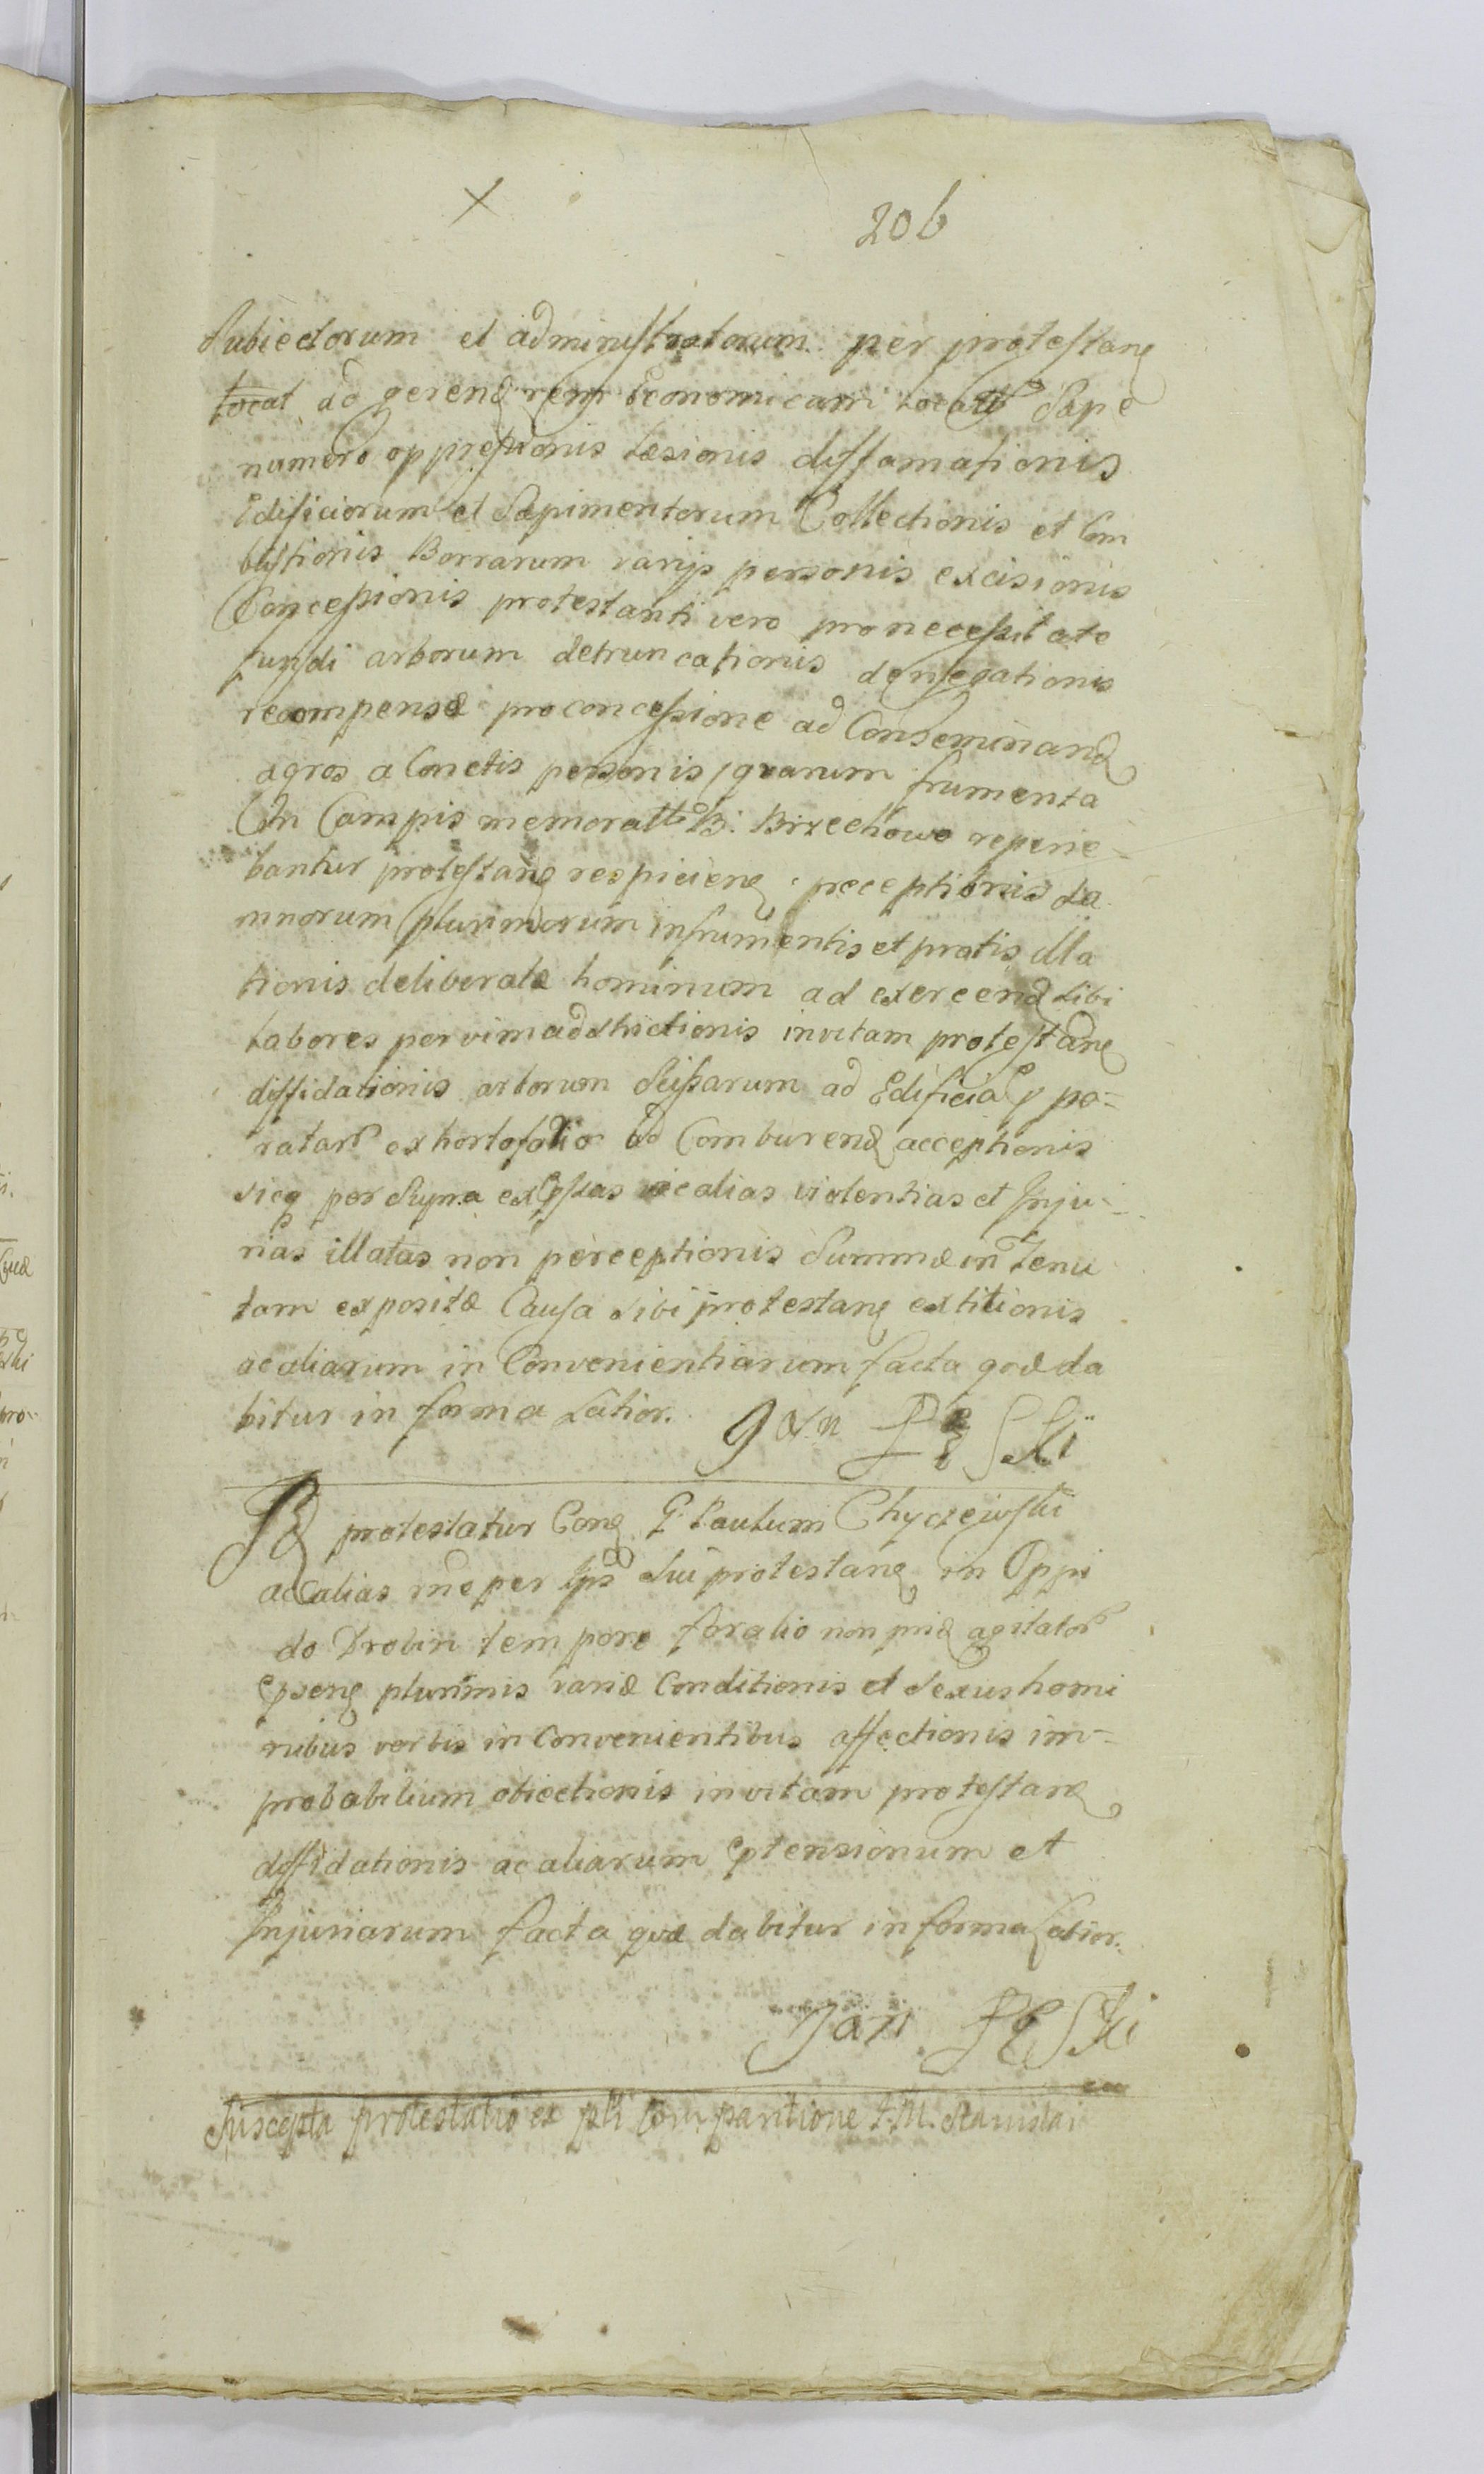 206
Subiectorum et administratorum per protestanĘ
locat ad gerend rem Œconomicam locatorum Sæpe
numero oppressionis Læsionis diffamationis
Edificiorum et Sæpimentorum Collectionis et Com
bustionis Borrarum varijs personis excisionis
Concessionis protestanti vero pro necessitate
fundi arborum detruncationis denegationis
recompensæ pro concessione ad Conseminand
agros a Conetis personis quarum frumenta
In Campis memorat B: Brzechowo reperie-
bantur protestan respicien perceptionis da
mnorum plurimorum in frumentis et pratis illa
tionis deliberatæ hominum ad exercend sibi
Labores per vim addictionis invitam protestan
diffidationis arborum Scissarum ad Edificia p pa-
ratar ex hortofolio ad Comburend acceptionis
sicq per Supra exp̄ssas ac alias violentias et Inju-
rias illatas non perceptionis Summæ in Tenu
tam expositæ Causa sibi protestan extitionis
ac aliarum in Convenientiarum facta qvæ da
bitur in forma Latior.
Jan PęSki
Id protestatur Con G. Paulum Chyczewski
ac alias me per Ips Sui protestan in Oppi
do Drobin tempore foralio non prid agitator
p̄sen plurimis variæ Conditionis et Sexus homi
nibus verbis in Convenientibus affectionis im-
probabilium obiectionis invitam protestan
diffidationis ac aliarum p̄tensionum et
Injuriarum facta qvæ dabitur in forma Latior.
Jan PęSki
Suscepta protestatio ex pli Comparitione G. M. Stanislai